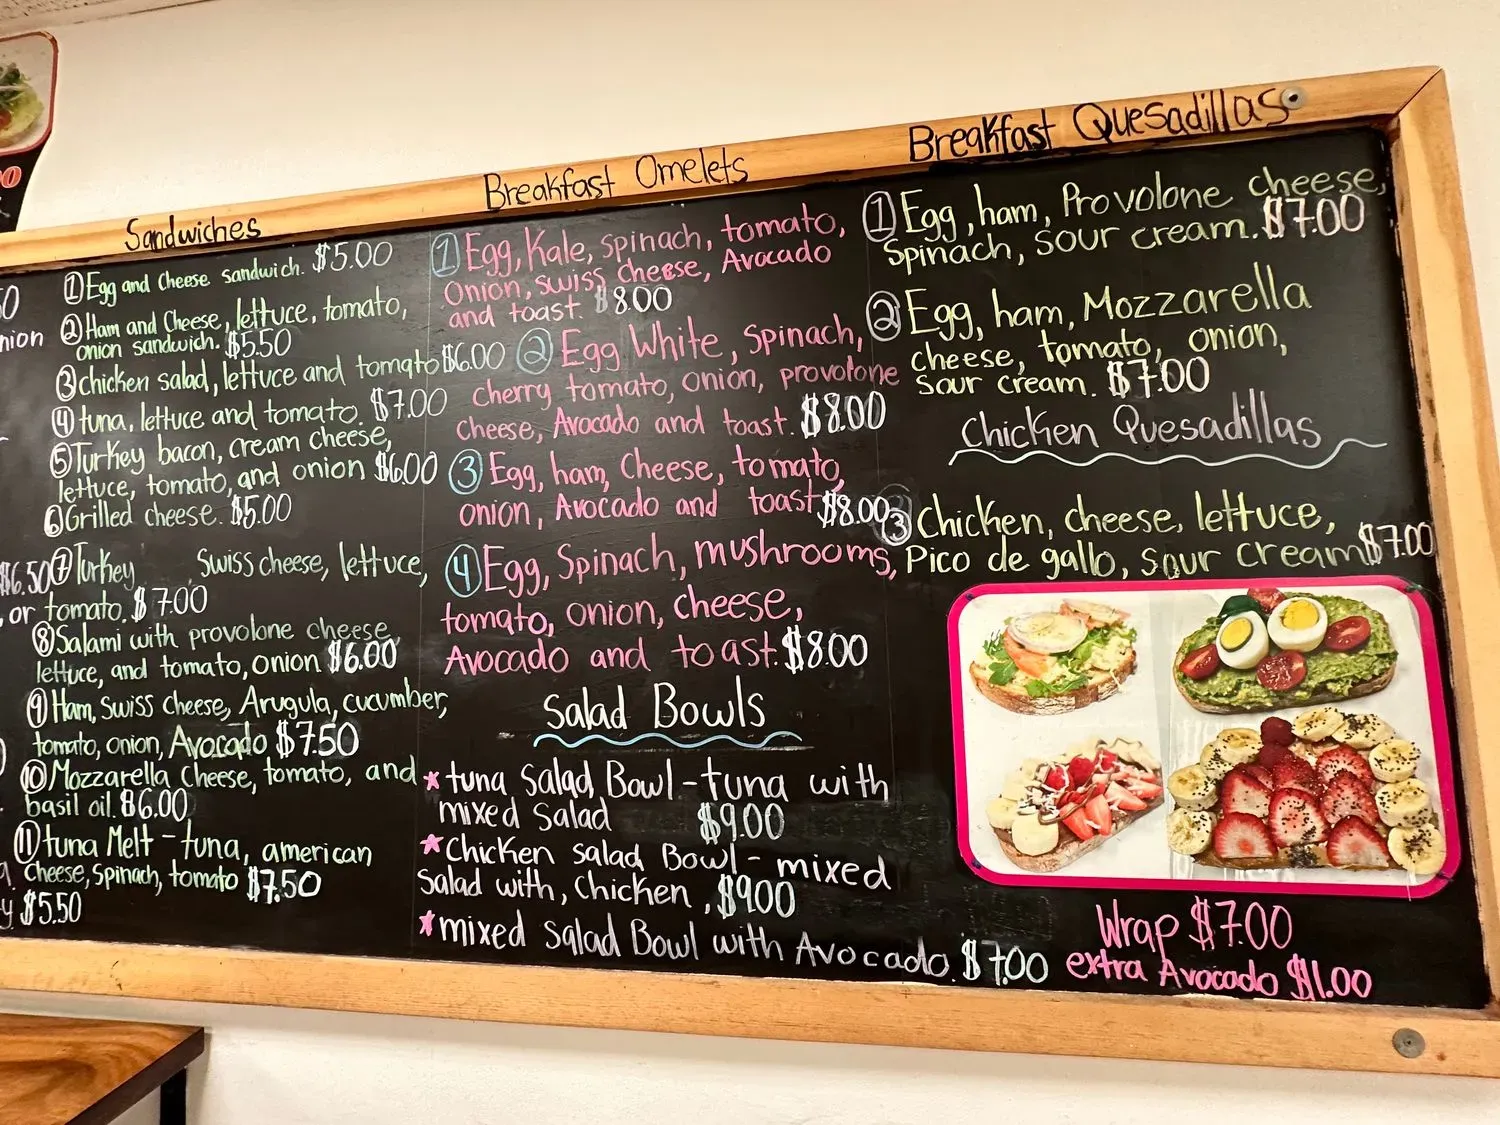 Sandwiches
① Egg and cheese sandwich. $5.00
② Ham and Cheese, lettuce, tomato,
onion sandwich. $5.50
③ chicken salad, lettuce and tomato $6.00
④ tuna, lettuce and tomato. $7.00
⑤ Turkey bacon, cream cheese,
lettuce, tomato, and onion $6.00
⑥ Grilled cheese. $5.00
⑦ Turkey Swiss cheese, lettuce,
or tomato. $7.00
⑧ Salami with provolone cheese,
lettuce, and tomato, onion $6.00
⑨ Ham, Swiss cheese, Arugula, cucumber,
tomato, onion, Avocado $7.50
⑩ Mozzarella Cheese, tomato, and
basil oil. $6.00
⑪ tuna Melt - tuna, american
Cheese, spinach, tomato $7.50
nion
$6.50
$5.50
Breakfast Omelets
① Egg, Kale, spinach, tomato,
Onion, swiss cheese, Avocado
and toast. $8.00
② Egg White, spinach,
cherry tomato, onion, provolone
cheese, Avocado and toast. $8.00
③ Egg, ham, Cheese, tomato,
onion, Avocado and toast. $8.00
④ Egg, Spinach, mushrooms,
tomato, onion, cheese,
Avocado and toast. $8.00
Salad Bowls
* tuna Salad Bowl - tuna with
mixed Salad $9.00
* chicken salad Bowl - mixed
Salad with, chicken, $9.00
* mixed Salad Bowl with Avocado. $7.00
Breakfast Quesadillas
① Egg, ham, Provolone cheese,
Spinach, sour cream. $7.00
② Egg, ham, Mozzarella
cheese, tomato, onion,
Sour cream. $7.00
Chicken Quesadillas
③ Chicken, cheese, lettuce,
Pico de gallo, sour cream $7.00
Wrap $7.00
extra Avocado $1.00